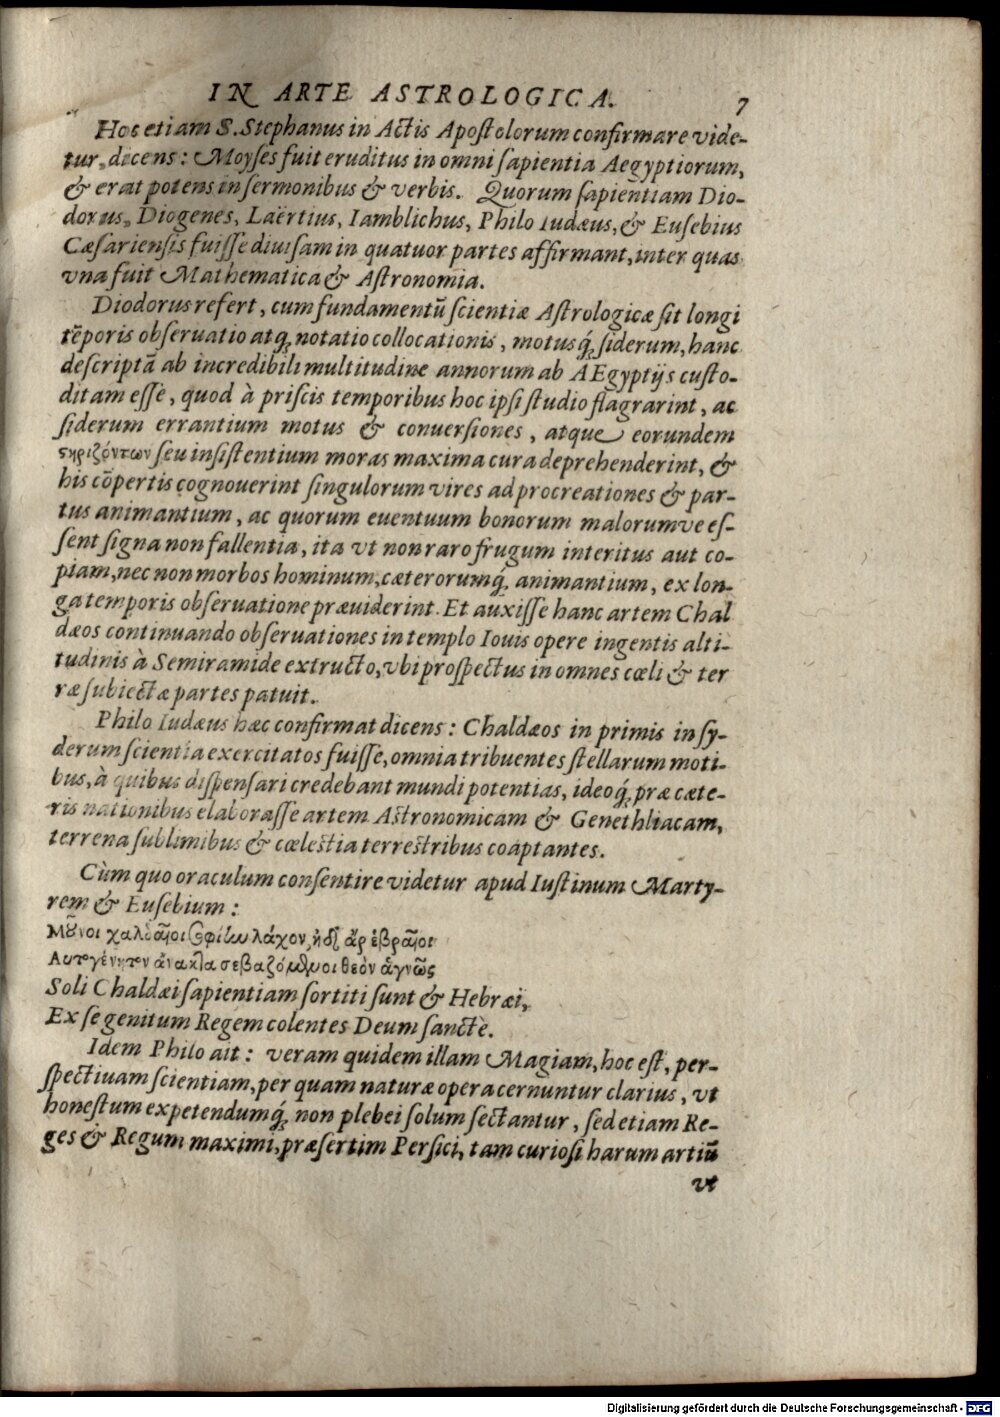 IN ARTE ASTROLOGICA. 7
Hoc etiam S. Stephanus in Actis Apostolorum confirmare vide-
tur, dicens: Moyses fuit eruditus in omni sapientia Aegyptiorum,
& erat potens in sermonibus & verbis. Quorum sapientiam Dio-
dorus, Diogenes, Laërtius, Iamblichus, Philo Iudæus, & Eusebius
Cæsariensis fuisse diuisam in quatuor partes affirmant, inter quas
vna fuit Mathematica & Astronomia.
Diodorus refert, cum fundamentū scientiæ Astrologicæ sit longi
tēporis obseruatio atq; notatio collocationis, motusq́; siderum, hanc
descriptā ab incredibili multitudine annorum ab AEgyptijs custo-
ditam esse, quod à priscis temporibus hoc ipsi studio flagrarint, ac
siderum errantium motus & conuersiones, atque eorundem
ςηριζόντων seu insistentium moras maxima cura deprehenderint, &
his cōpertis cognouerint singulorum vires ad procreationes & par-
tus animantium, ac quorum euentuum bonorum malorumve es-
sent signa non fallentia, ita vt non raro frugum interitus aut co-
piam, nec non morbos hominum, cæterorumq́; animantium, ex lon-
ga temporis obseruatione præuiderint. Et auxisse hanc artem Chal
dæos continuando obseruationes in templo Iouis opere ingentis alti-
tudinis à Semiramide extructo, vbi prospectus in omnes cæli & ter
ræ subiectæ partes patuit.
Philo Iudæus hæc confirmat dicens: Chaldæos in primis in sy-
derum scientia exercitatos fuisse, omnia tribuentes stellarum moti-
bus, à quibus dispensari credebant mundi potentias, ideoq́; præ cæte-
ris nationibus elaborasse artem Astronomicam & Genethliacam,
terrena sublimibus & cælestia terrestribus coaptantes.
Cùm quo oraculum consentire videtur apud Iustinum Marty-
rem & Eusebium:
Μοῦνοι χαλδαῖοι σοφίην λάχον, ἠδ' ἄρ ἑβραῖοι
Αυτογένητον ἄνακτα σεβαζόμενοι θεὸν ἁγνῶς
Soli Chaldæi sapientiam sortiti sunt & Hebræi,
Ex se genitum Regem colentes Deum sanctè.
Idem Philo ait: veram quidem illam Magiam, hoc est, per-
spectiuam scientiam, per quam naturæ opera cernuntur clarius, vt
honestum expetendumq́; non plebei solum sectantur, sed etiam Re-
ges & Regum maximi, præsertim Persici, tam curiosi harum artiū
vt
Digitalisierung gefördert durch die Deutsche Forschungsgemeinschaft - DFG